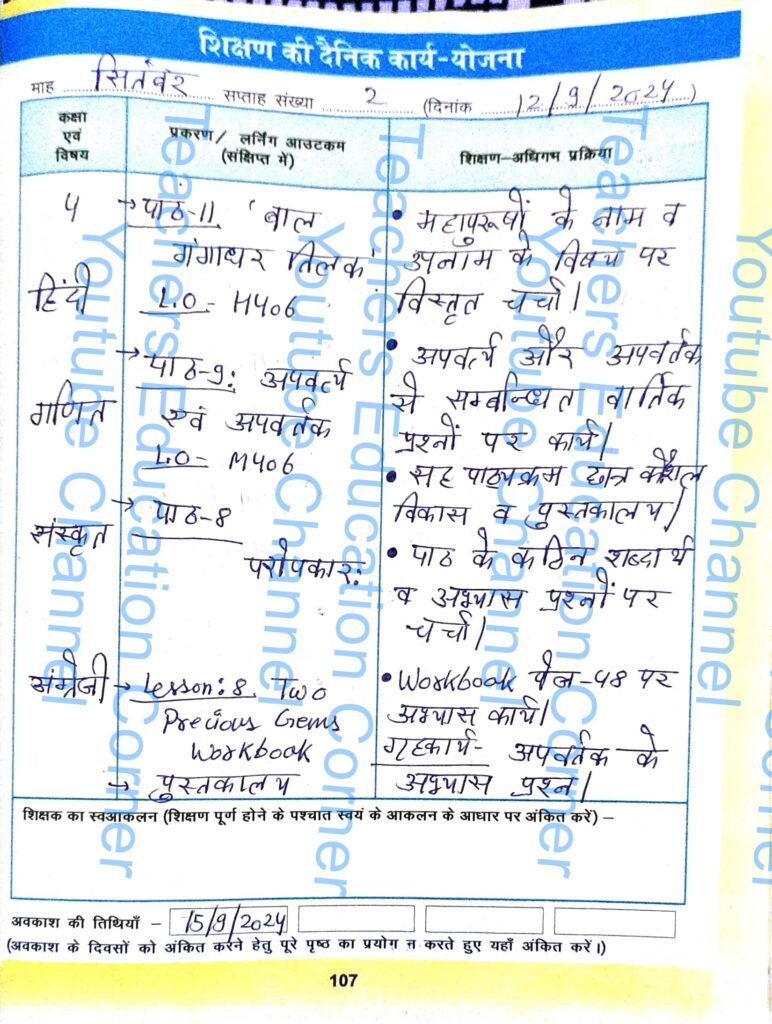 शिक्षण की दैनिक कार्य-योजना
माह सितंबर सप्ताह संख्या 2 (दिनांक 12/9/2024)
कक्षा एवं विषय
प्रकरण/ लर्निंग आउटकम (संक्षिप्त में)
शिक्षण-अधिगम प्रक्रिया
५
→ पाठ-11 'बाल
गंगाधर तिलक'
हिंदी
L.O - H406
• महापुरूषों के नाम व
के विषय पर
विस्तृत चर्चा।
→ पाठ-9: अपवर्त्य
गणित एवं अपवर्तक
L.O - M406
• अपवर्त्य और अपवर्तक
से सम्बन्धित वार्तिक
प्रश्नों पर कार्य।
• सह पाठ्यक्रम छात्र कौशल
विकास व पुस्तकालय।
→ पाठ-8
संस्कृत
परोपकार:
• पाठ के कठिन शब्दार्थ
व अभ्यास प्रश्नों पर
चर्चा।
अंग्रेजी → Lesson: 8. Two
Precious Gems
Workbook
→ पुस्तकालय
• Workbook पेज-५8 पर
अभ्यास कार्य।
गृहकार्य- अपवर्तक के
अभ्यास प्रश्न।
शिक्षक का स्वआकलन (शिक्षण पूर्ण होने के पश्चात स्वयं के आकलन के आधार पर अंकित करें) –
अवकाश की तिथियाँ – 15/9/2024
(अवकाश के दिवसों को अंकित करने हेतु पूरे पृष्ठ का प्रयोग न करते हुए यहाँ अंकित करें।)
107
Teachers Education Corner
Youtube Channel
Teachers Education Corner
Youtube Channel
Teachers Education Corner
Youtube Channel